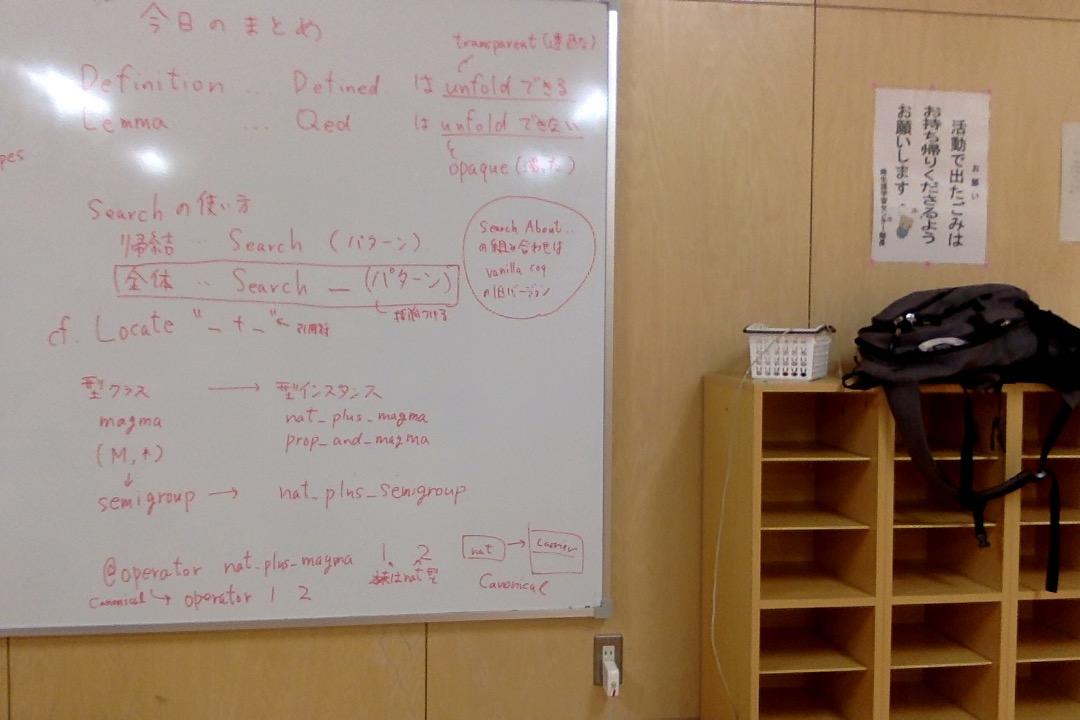 今日のまとめ
transparent (透過な)
Definition … Defined は unfold できる
Lemma … Qed は unfold できない
opaque
pes
Search の使い方
帰結 … Search (パターン)
全体 … Search _ (パターン)
括弧つける
Search About..
の組み合わせは
vanilla coq
の旧バージョン
cf. Locate "_ + _" ← 引用符
型クラス → 型インスタンス
magma nat_plus_magma
prop_and_magma
(M, *)
↓
semigroup → nat_plus_semigroup
@operator nat_plus_magma 1 2
はnat型
Canonical ↳ operator 1 2
nat → carrier
Canonical
お願い
活動で出たごみは
お持ち帰りくださるよう
お願いします